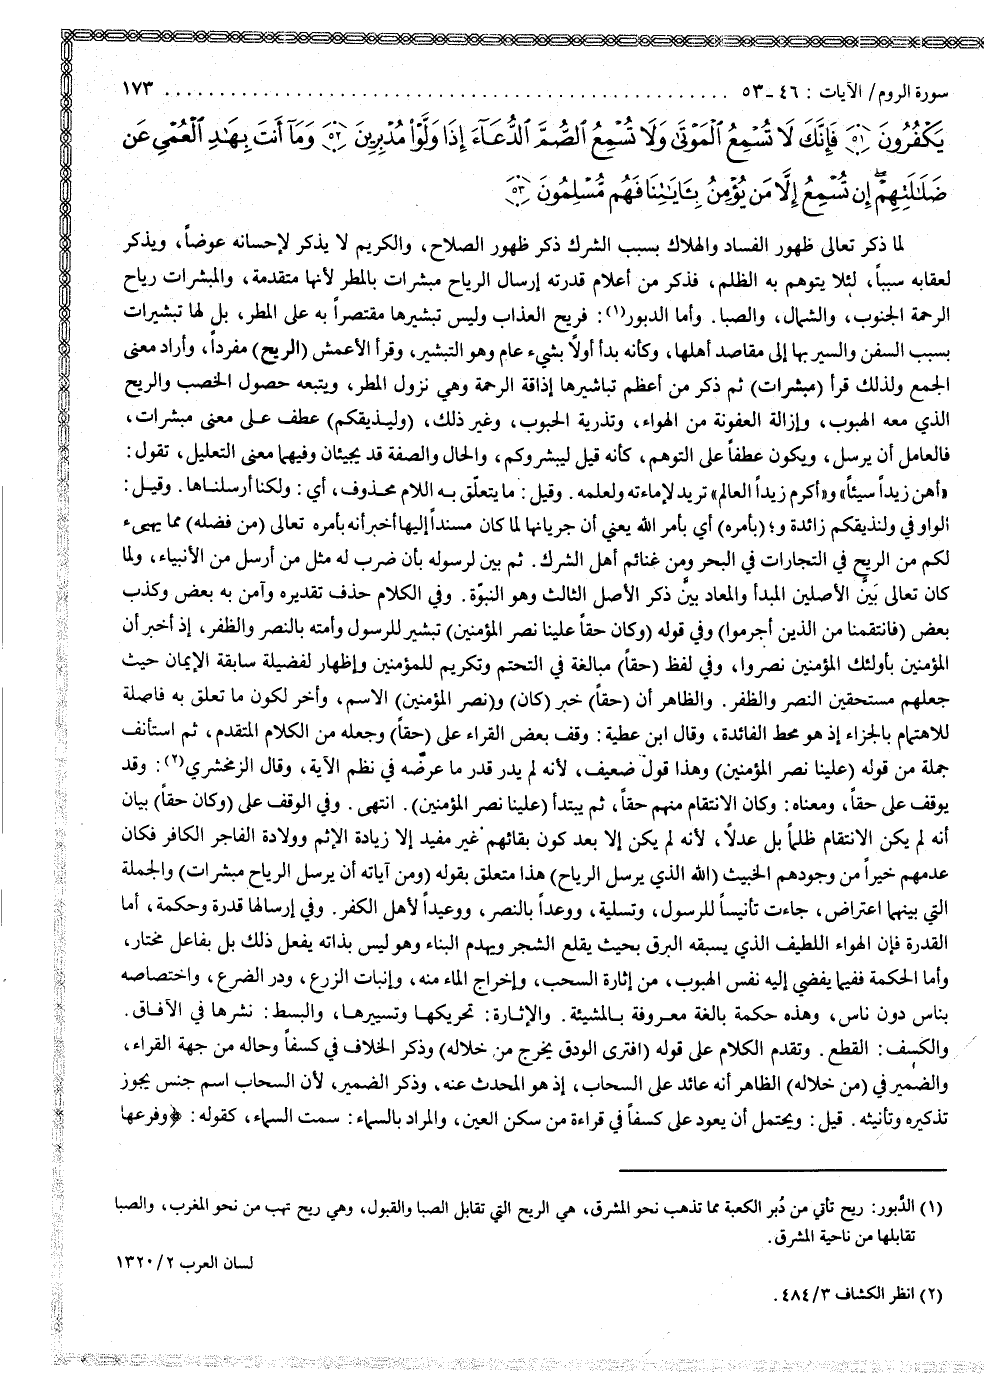 سورة الروم/ الآيات : ٤٦ ـ ٥٣ ........................................ ١٧٣
يَكْفُرُونَ ﴿٥١﴾ فَإِنَّكَ لَا تُسْمِعُ الْمَوْتَىٰ وَلَا تُسْمِعُ الصُّمَّ الدُّعَآءَ إِذَا وَلَّوْا مُدْبِرِينَ ﴿٥٢﴾ وَمَآ أَنتَ بِهَٰدِ الْعُمْيِ عَن
ضَلَٰلَتِهِمْ ۖ إِن تُسْمِعُ إِلَّا مَن يُؤْمِنُ بِـَٔايَٰتِنَا فَهُم مُّسْلِمُونَ ﴿٥٣﴾
لما ذكر تعالى ظهور الفساد والهلاك بسبب الشرك ذكر ظهور الصلاح، والكريم لا يذكر لإحسانه عوضاً، ويذكر
لعقابه سبباً، لئلا يتوهم به الظلم، فذكر من أعلام قدرته إرسال الرياح مبشرات بالمطر لأنها متقدمة، والمبشرات رياح
الرحمة الجنوب، والشمال، والصبا. وأما الدبور(١): فريح العذاب وليس تبشيرها مقتصراً به على المطر، بل لها تبشيرات
بسبب السفن والسير بها إلى مقاصد أهلها، وكأنه بدأ أولاً بشيء عام وهو التبشير، وقرأ الأعمش (الريح) مفرداً، وأراد معنى
الجمع ولذلك قرأ (مبشرات) ثم ذكر من أعظم تباشيرها إذاقة الرحمة وهي نزول المطر، ويتبعه حصول الخصب والريح
الذي معه الهبوب، وإزالة العفونة من الهواء، وتذرية الحبوب، وغير ذلك، (وليذيقكم) عطف على معنى مبشرات،
فالعامل أن يرسل، ويكون عطفاً على التوهم، كأنه قيل ليبشروكم، والحال والصفة قد يجيئان وفيهما معنى التعليل، تقول:
«أهن زيداً سيئاً» و«أكرم زيداً العالم» تريد لإماءته ولعلمه. وقيل: ما يتعلّق به اللام محذوف، أي: ولكنا أرسلناها. وقيل:
الواو في ولنذيقكم زائدة و؛ (بأمره) أي بأمر الله يعني أن جريانها لما كان مسنداً إليها أخبر أنه بأمره تعالى (من فضله) مما يهيىء
لكم من الريح في التجارات في البحر ومن غنائم أهل الشرك. ثم بين لرسوله بأن ضرب له مثل من أرسل من الأنبياء، ولما
كان تعالى بَيَّن الأصلين المبدأ والمعاد بيّن ذكر الأصل الثالث وهو النبوّة. وفي الكلام حذف تقديره وآمن به بعض وكذب
بعض (فانتقمنا من الذين أجرموا) وفي قوله (وكان حقاً علينا نصر المؤمنين) تبشير للرسول وأمته بالنصر والظفر، إذ أخبر أن
المؤمنين بأولئك المؤمنين نصروا، وفي لفظ (حقاً) مبالغة في التحتم وتكريم للمؤمنين وإظهار لفضيلة سابقة الإيمان حيث
جعلهم مستحقين النصر والظفر. والظاهر أن (حقاً) خبر (كان) و(نصر المؤمنين) الاسم، وأخر لكون ما تعلق به فاصلة
للاهتمام بالجزاء إذ هو محط الفائدة، وقال ابن عطية: وقف بعض القراء على (حقاً) وجعله من الكلام المتقدم، ثم استأنف
جملة من قوله (علينا نصر المؤمنين) وهذا قول ضعيف، لأنه لم يدر قدر ما عرضه في نظم الآية، وقال الزمخشري(٢): وقد
يوقف على حقاً، ومعناه: وكان الانتقام منهم حقاً، ثم يبتدأ (علينا نصر المؤمنين). انتهى. وفي الوقف على (وكان حقاً) بيان
أنه لم يكن الانتقام ظلماً بل عدلاً، لأنه لم يكن إلا بعد كون بقائهم غير مفيد إلا زيادة الإثم وولادة الفاجر الكافر فكان
عدمهم خيراً من وجودهم الخبيث (الله الذي يرسل الرياح) هذا متعلق بقوله (ومن آياته أن يرسل الرياح مبشرات) والجملة
التي بينهما اعتراض، جاءت تأنيساً للرسول، وتسلية، ووعداً بالنصر، ووعيداً لأهل الكفر. وفي إرسالها قدرة وحكمة، أما
القدرة فإن الهواء اللطيف الذي يسبقه البرق بحيث يقلع الشجر ويهدم البناء وهو ليس بذاته يفعل ذلك بل بفاعل مختار،
وأما الحكمة ففيما يفضي إليه نفس الهبوب، من إثارة السحب، وإخراج الماء منه، وإنبات الزرع، ودر الضرع، واختصاصه
بناس دون ناس، وهذه حكمة بالغة معروفة بالمشيئة. والإثارة: تحريكها وتسييرها، والبسط: نشرها في الآفاق.
والكسف: القطع. وتقدم الكلام على قوله (افترى الودق يخرج من خلاله) وذكر الخلاف في كسفاً وحاله من جهة القراء،
والضمير في (من خلاله) الظاهر أنه عائد على السحاب، إذ هو المحدث عنه، وذكر الضمير، لأن السحاب اسم جنس يجوز
تذكيره وتأنيثه. قيل: ويحتمل أن يعود على كسفاً في قراءة من سكن العين، والمراد بالسماء: سمت السماء، كقوله: ﴿وفرعها
(١) الدَّبور: ريح تأتي من دُبر الكعبة مما تذهب نحو المشرق، هي الريح التي تقابل الصبا والقبول، وهي ريح تهب من نحو المغرب، والصبا
تقابلها من ناحية المشرق.
لسان العرب ١٣٢٠/٢
(٢) انظر الكشاف ٤٨٤/٣.